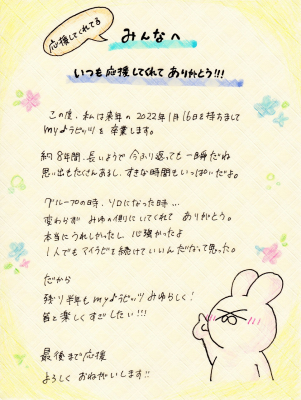 応援してくれてる
みんなへ
いつも応援してくれて ありがとう!!!
この度、私は来年の2022年1月16日を持ちまして
myようラビッツを卒業します。
約8年間、長いようで 今ふり返っても一瞬だね
思い出もたくさんあるし、すきな時間もいっぱいだよ。
グループの時、ソロになった時…
変わらず みゆの側にいてくれて ありがとう。
本当にうれしかったし 心強かったよ
1人でもマイラビを続けていいんだなって思った。
だから
残り半年もmyようラビッツ みゆらしく!
皆と楽しくすごしたい!!!
最後まで応援
よろしく おねがいします!!